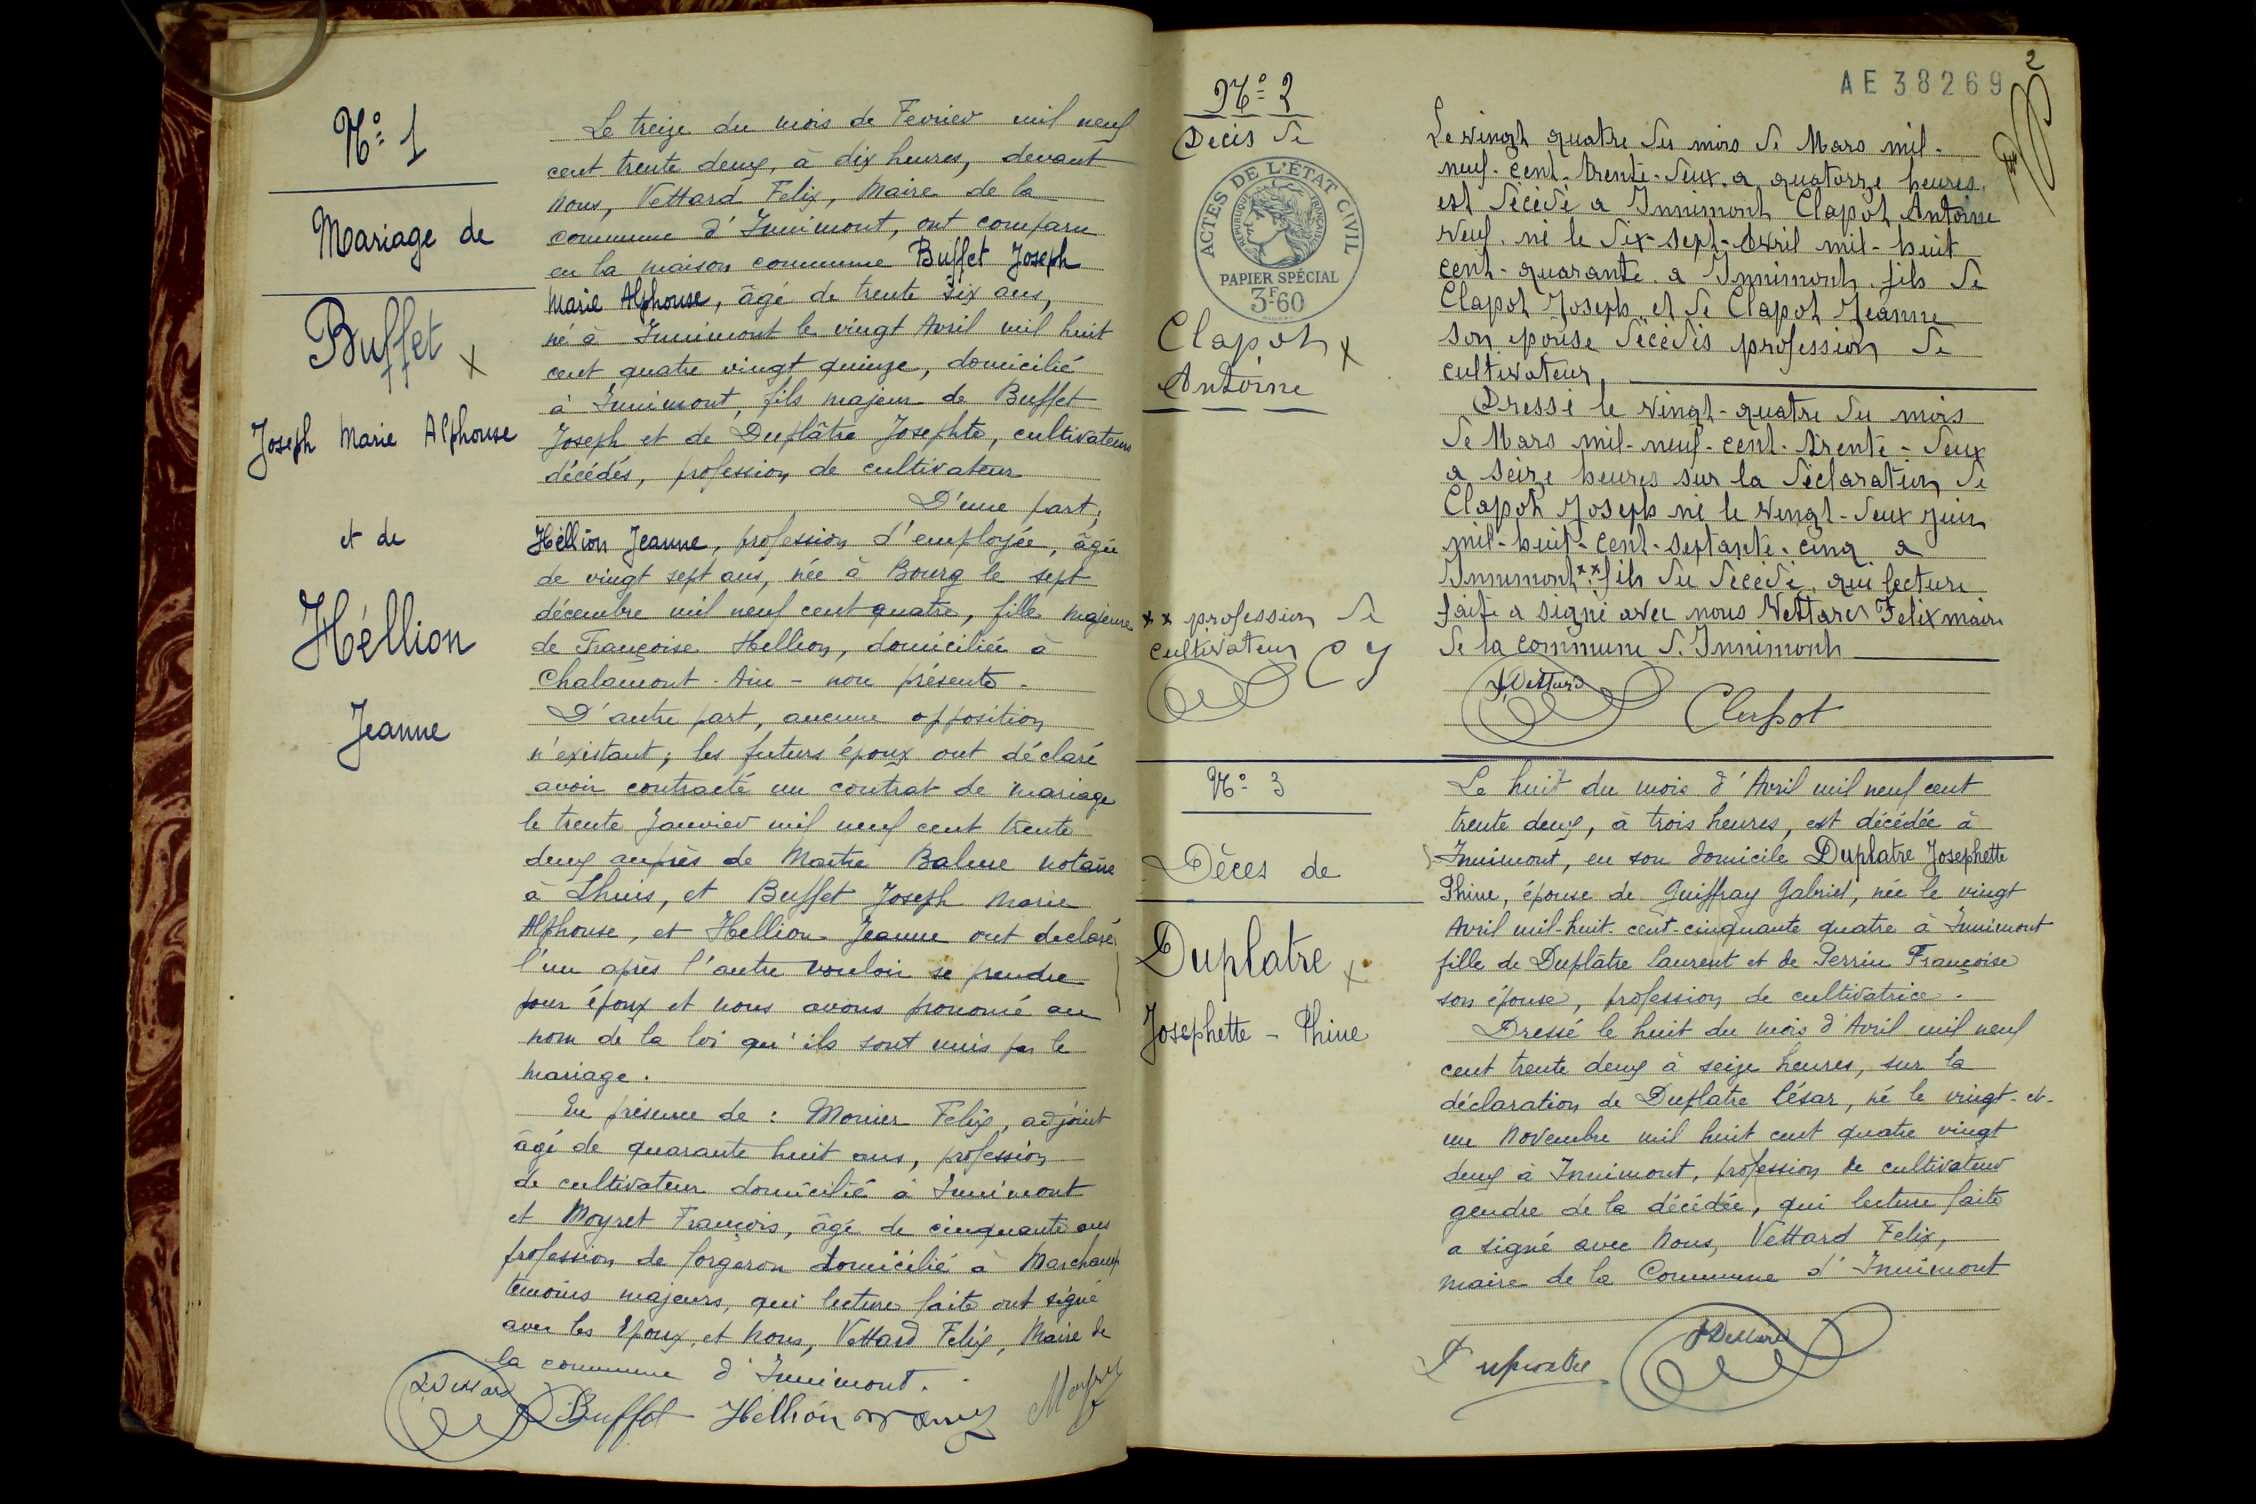 N° 1
Mariage de
Buffet x
Joseph Marie Alphonse
et de
Héllion
Jeanne
Le treize du mois de Fevrier mil neuf
cent trente deux, à dix heures, devant
nous, Vettard Felix, Maire de la
commune d'Innimont, ont comparu
en la maison commune Buffet Joseph
Marie Alphonse, âgé de trente six ans,
né à Innimont le vingt Avril mil huit
cent quatre vingt quinze, domicilié
à Innimont, fils majeur de Buffet
Joseph et de Duplâtre Josephte, cultivateurs
décédés, profession de cultivateur
D'une part,
Héllion Jeanne, profession d'employée, âgée
de vingt sept ans, née à Bourg le sept
décembre mil neuf cent quatre, fille majeure
de Françoise Hellion, domiciliée à
Chalamont - Ain - non présente.
D'autre part, aucune opposition
n'existant; les futurs époux ont déclaré
avoir contracté un contrat de mariage
le trente Janvier mil neuf cent trente
deux auprès de Maitre Balme notaire
à Lhuis, et Buffet Joseph Marie
Alphonse, et Hellion Jeanne ont declaré
l'un après l'autre vouloir se prendre
pour époux et nous avons prononcé au
nom de la loi qu'ils sont unis par le
mariage.
En présence de : Monier Felix, adjoint
âgé de quarante huit ans, profession
de cultivateur domicilié à Innimont
et Moyret François, âgé de cinquante ans
profession de forgeron domicilié à Marchamp
témoins majeurs, qui lecture faite ont signé
avec les Epoux, et nous, Vettard Felix, Maire de
la commune d'Innimont.
Vettard Buffet Hellion
AE 38269
2
N° 2
Décès de
ACTES DE L'ÉTAT CIVIL
RÉPUBLIQUE FRANÇAISE
PAPIER SPÉCIAL
3F60
Clapot x
Antoine
xx profession de
cultivateur C J
Le vingt quatre du mois de Mars mil-
neuf-cent-trente-deux, a quatorze heures,
est décédé a Innimont Clapot Antoine
veuf, né le dix-sept-Avril mil-huit
cent-quarante a Innimont fils de
Clapot Joseph et de Clapot Jeanne
son epouse décédés profession de
cultivateur
Dressé le vingt-quatre du mois
de Mars mil-neuf-cent-trente-deux
a seize heures sur la déclaration de
Clapot Joseph né le vingt-deux juin
mil-huit-cent-septante-cinq a
Innimont xx fils du décédé, qui lecture
faite a signé avec nous Vettard Felix maire
de la commune d'Innimont
Vettard Clapot
N° 3
Dèces de
Duplatre x
Josephette - Phine
Le huit du mois d'Avril mil neuf cent
trente deux, à trois heures, est décédée à
Innimont, en son domicile Duplatre Josephette
Phine, épouse de Guiffray Gabriel, née le vingt
Avril mil-huit-cent-cinquante quatre à Innimont
fille de Duplâtre Laurent et de Perrin Françoise
son épouse, profession de cultivatrice.
Dressé le huit du mois d'Avril mil neuf
cent trente deux à seize heures, sur la
déclaration de Duplatre César, né le vingt-et-
un Novembre mil huit cent quatre vingt
deux à Innimont, profession de cultivateur
gendre de la décédée, qui lecture faite
a signé avec Nous, Vettard Felix,
Maire de la Commune d'Innimont
Duplatre Vettard